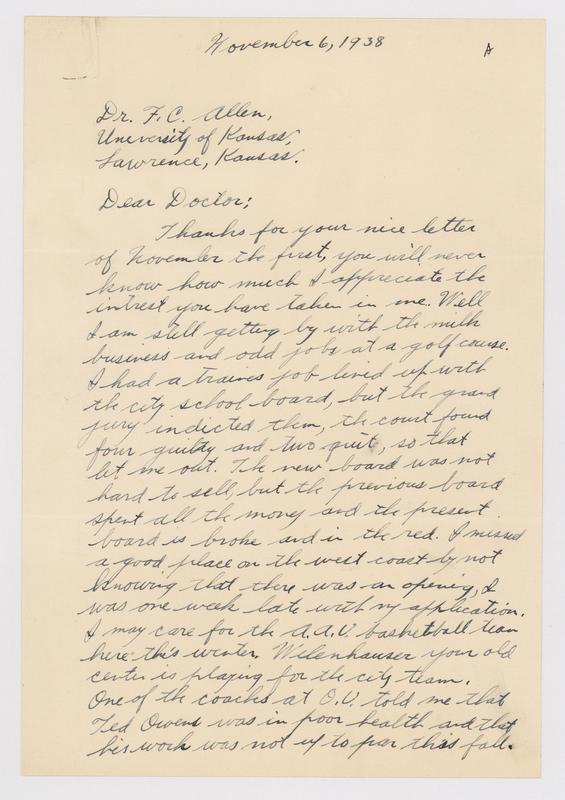 November 6, 1938
A
Dr. F. C. Allen,
University of Kansas,
Lawrence, Kansas.
Dear Doctor;
Thanks for your nice letter
of November the first, you will never
know how much I appreciate the
intrest you have taken in me. Well
I am still getting by with the milk
business and odd jobs at a golf course.
I had a trainers job lined up with
the city school board, but the grand
jury indicted them, the court found
four guilty and two quit, so that
let me out. The new board was not
hard to sell, but the previous board
spent all the money and the present
board is broke and in the red. I missed
a good place on the west coast by not
knowing that there was an opening, I
was one week late with my application.
I may care for the A.A.U. basketball team
here this winter. Welenhauser your old
center is playing for the city team.
One of the coachs at O.U. told me that
Ted Owens was in poor health and that
his work was not up to par this fall.